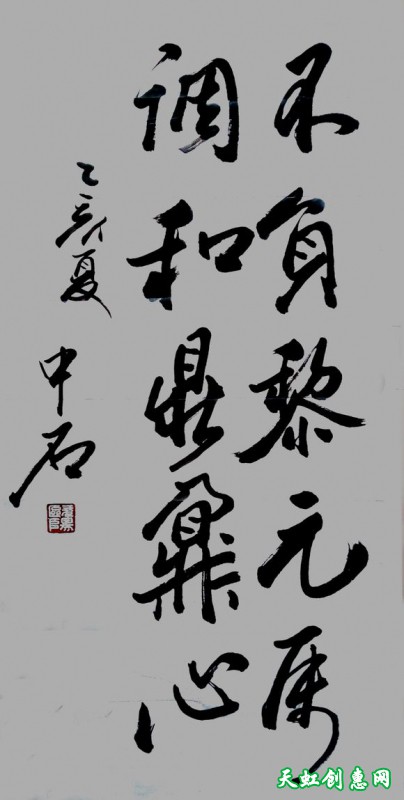 不负黎元属
调和鼎鼐心
乙亥夏
中石
天虹创惠网